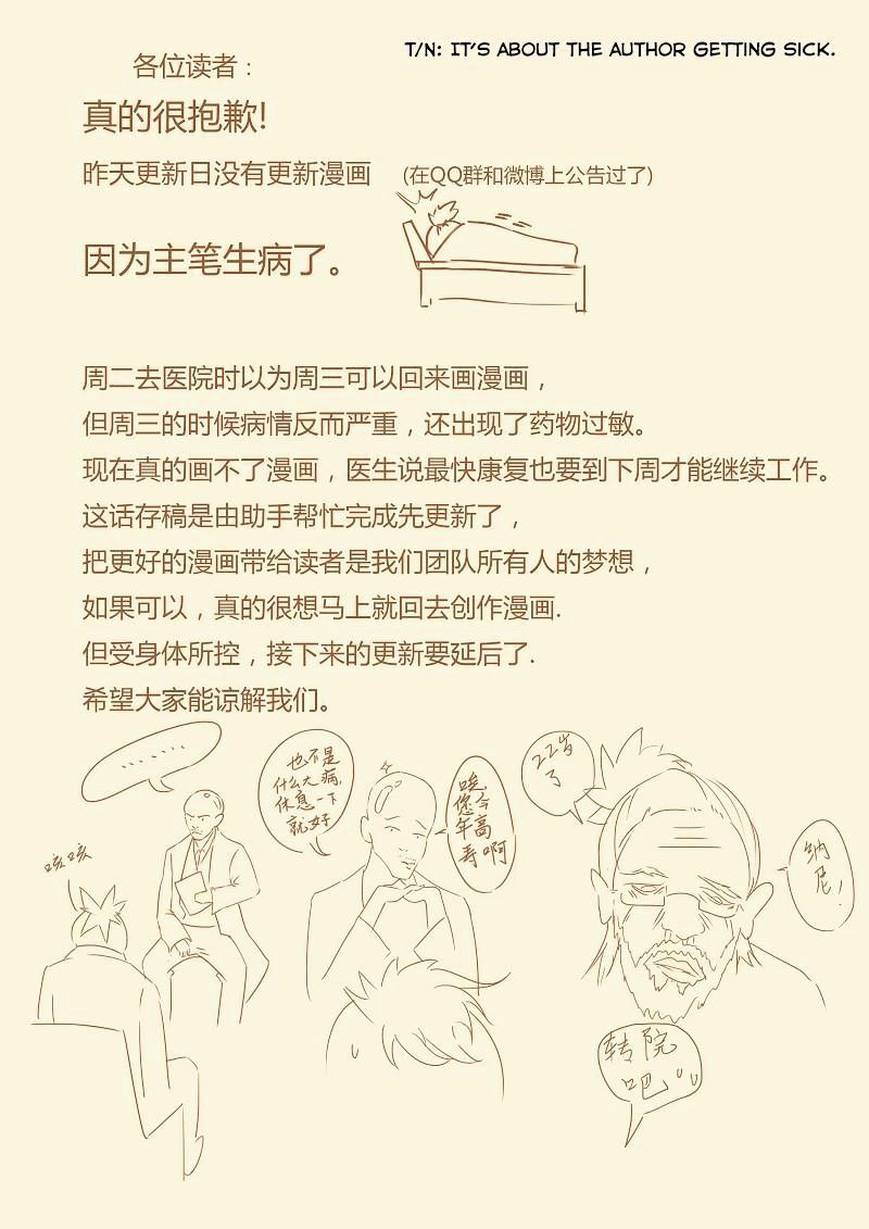 T/N: IT'S ABOUT THE AUTHOR GETTING SICK.
各位读者：
真的很抱歉!
昨天更新日没有更新漫画 (在QQ群和微博上公告过了)
因为主笔生病了。
周二去医院时以为周三可以回来画漫画，
但周三的时候病情反而严重，还出现了药物过敏。
现在真的画不了漫画，医生说最快康复也要到下周才能继续工作。
这话存稿是由助手帮忙完成先更新了，
把更好的漫画带给读者是我们团队所有人的梦想，
如果可以，真的很想马上就回去创作漫画.
但受身体所控，接下来的更新要延后了.
希望大家能谅解我们。
咳咳
.......
也不是
什么大病,
休息一下
就好
唉,
您今
年高
寿啊
22岁
了
纳
尼!
转院
吧